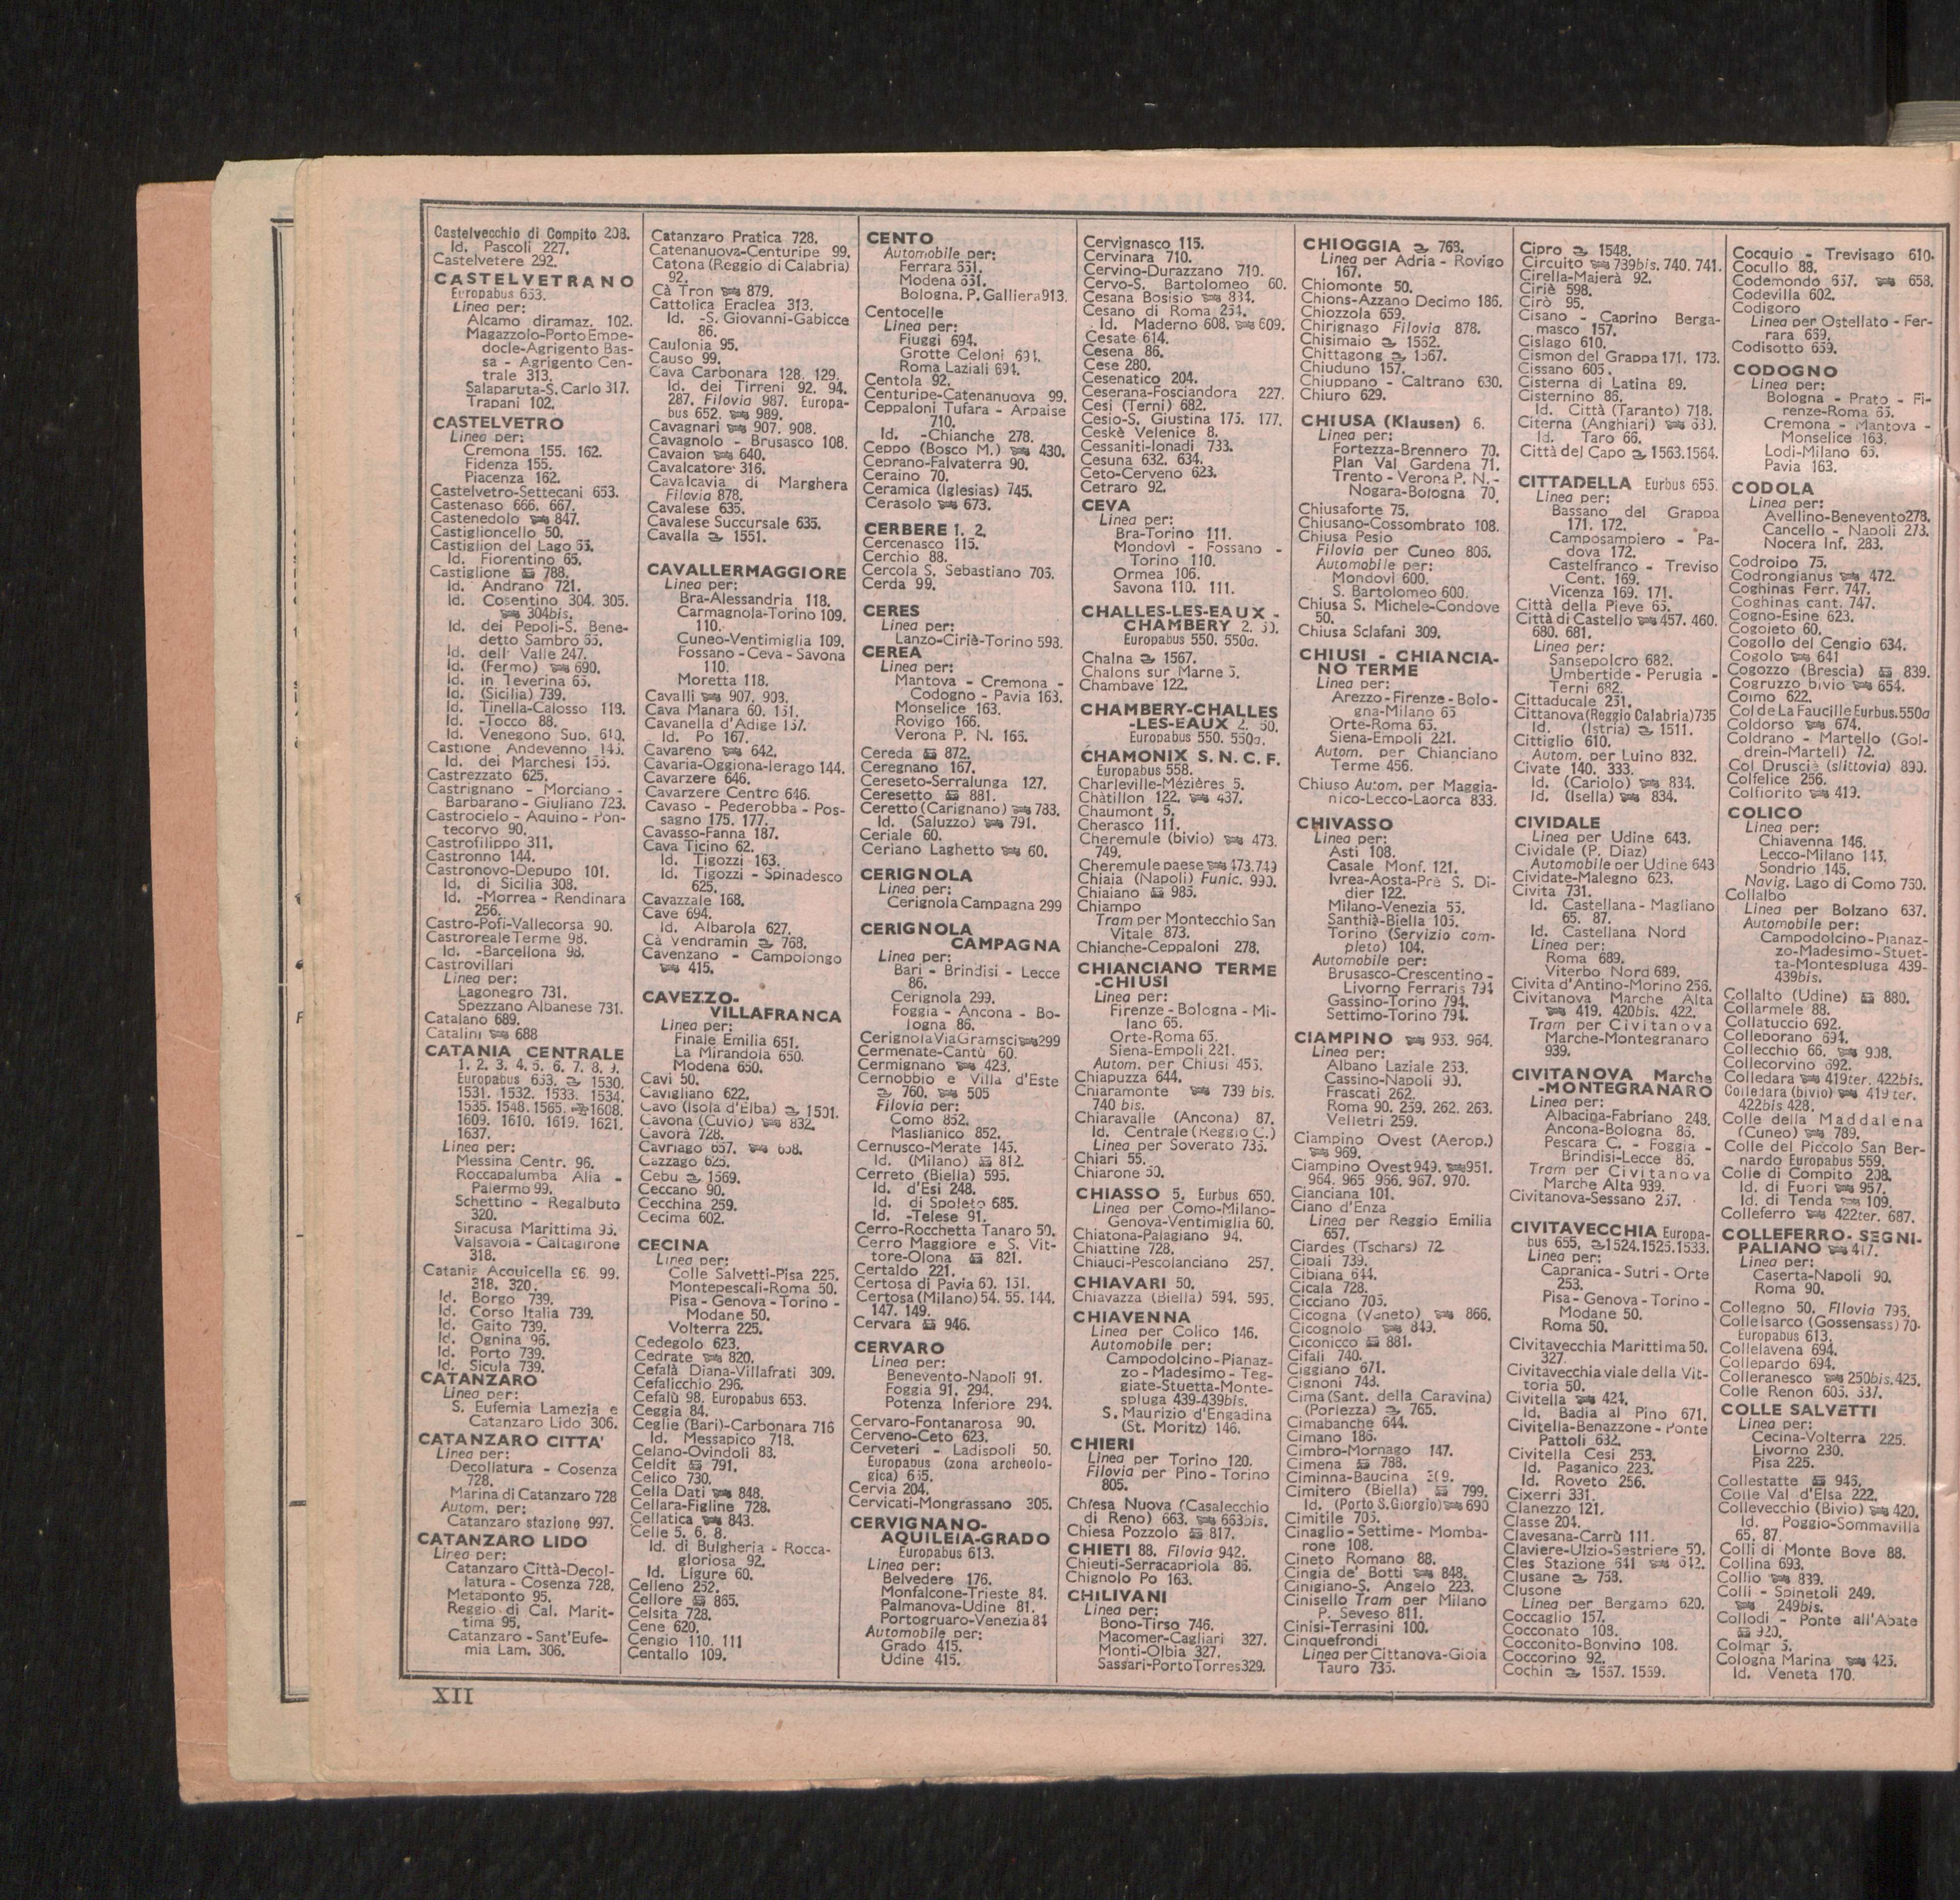 Castelvecchio di Compito 208.
Id. Pascoli 227.
Castelvetere 292.
CASTELVETRANO
Europabus 653.
Linea per:
Alcamo diramaz. 102.
Magazzolo-Porto Empe-
docle-Agrigento Bas-
sa - Agrigento Cen-
trale 313.
Salaparuta-S. Carlo 317.
Trapani 102.
CASTELVETRO
Linea per:
Cremona 155. 162.
Fidenza 155.
Piacenza 162.
Castelvetro-Settecani 653.
Castenaso 666. 667.
Castenedolo 847.
Castiglioncello 50.
Castiglion del Lago 65.
Id. Fiorentino 65.
Castiglione 788.
Id. Andrano 721.
Id. Cosentino 304. 305.
304bis.
Id. dei Pepoli-S. Bene-
detto Sambro 65.
Id. dell' Valle 247.
Id. (Fermo) 690.
Id. in Teverina 65.
Id. (Sicilia) 739.
Id. Tinella-Calosso 118.
Id. -Tocco 88.
Id. Venegono Sup. 610.
Castione Andevenno 145.
Id. dei Marchesi 155.
Castrezzato 625.
Castrignano - Morciano -
Barbarano - Giuliano 723.
Castrocielo - Aquino - Pon-
tecorvo 90.
Castrofilippo 311.
Castronno 144.
Castronovo-Depupo 101.
Id. di Sicilia 308.
Id. -Morrea - Rendinara
256.
Castro-Pofi-Vallecorsa 90.
Castroreale Terme 98.
Id. -Barcellona 98.
Castrovillari
Linea per:
Lagonegro 731.
Spezzano Albanese 731.
Catalano 689.
Catalini 688
CATANIA CENTRALE
1. 2. 3. 4. 5. 6. 7. 8. 9.
Europabus 653. 1530.
1531. 1532. 1533. 1534.
1535. 1548. 1565. 1608.
1609. 1610. 1619. 1621.
1637.
Linea per:
Messina Centr. 96.
Roccapalumba Alia -
Palermo 99.
Schettino - Regalbuto
320.
Siracusa Marittima 95.
Valsavoia - Caltagirone
318.
Catania Acquicella 96. 99.
318. 320.
Id. Borgo 739.
Id. Corso Italia 739.
Id. Gaito 739.
Id. Ognina 96.
Id. Porto 739.
Id. Sicula 739.
CATANZARO
Linea per:
S. Eufemia Lamezia e
Catanzaro Lido 306.
CATANZARO CITTA'
Linea per:
Decollatura - Cosenza
728.
Marina di Catanzaro 728
Autom. per:
Catanzaro stazione 997.
CATANZARO LIDO
Linea per:
Catanzaro Città-Decol-
latura - Cosenza 728.
Metaponto 95.
Reggio di Cal. Marit-
tima 95.
Catanzaro - Sant'Eufe-
mia Lam. 306.
Catanzaro Pratica 728.
Catenanuova-Centuripe 99.
Catona (Reggio di Calabria)
92.
Cà Tron 879.
Cattolica Eraclea 313.
Id. -S. Giovanni-Gabicce
86.
Caulonia 95.
Causo 99.
Cava Carbonara 128. 129.
Id. dei Tirreni 92. 94.
287. Filovia 987. Europa-
bus 652. 989.
Cavagnari 907. 908.
Cavagnolo - Brusasco 108.
Cavaion 640.
Cavalcatore 316.
Cavalcavia di Marghera
Filovia 878.
Cavalese 635.
Cavalese Succursale 635.
Cavalla 1551.
CAVALLERMAGGIORE
Linea per:
Bra-Alessandria 118.
Carmagnola-Torino 109.
110.
Cuneo-Ventimiglia 109.
Fossano - Ceva - Savona
110.
Moretta 118.
Cavalli 907. 908.
Cava Manara 60. 151.
Cavanella d'Adige 167.
Id. Po 167.
Cavareno 642.
Cavaria-Oggiona-Ierago 144.
Cavarzere 646.
Cavarzere Centro 646.
Cavaso - Pederobba - Pos-
sagno 175. 177.
Cavasso-Fanna 187.
Cava Ticino 62.
Id. Tigozzi 163.
Id. Tigozzi - Spinadesco
625.
Cavazzale 168.
Cave 694.
Id. Albarola 627.
Cà vendramin 768.
Cavenzano - Campolongo
415.
CAVEZZO-
VILLAFRANCA
Linea per:
Finale Emilia 651.
La Mirandola 650.
Modena 650.
Cavi 50.
Cavigliano 622.
Cavo (Isola d'Elba) 1501.
Cavona (Cuvio) 832.
Cavorà 728.
Cavriago 657. 658.
Cazzago 625.
Cebu 1569.
Ceccano 90.
Cecchina 259.
Cecima 602.
CECINA
Linea per:
Colle Salvetti-Pisa 225.
Montepescali-Roma 50.
Pisa - Genova - Torino -
Modane 50.
Volterra 225.
Cedegolo 623.
Cedrate 820.
Cefalà Diana-Villafrati 309.
Cefalicchio 296.
Cefalù 98. Europabus 653.
Ceggia 84.
Ceglie (Bari)-Carbonara 716
Id. Messapico 718.
Celano-Ovindoli 88.
Celdit 791.
Celico 730.
Cella Dati 848.
Cellara-Figline 728.
Cellatica 843.
Celle 5. 6. 8.
Id. di Bulgheria - Rocca-
gloriosa 92.
Id. Ligure 60.
Celleno 252.
Cellore 865.
Celsita 728.
Cene 620.
Cengio 110. 111
Centallo 109.
CENTO
Automobile per:
Ferrara 651.
Modena 651.
Bologna. P. Galliera 913.
Centocelle
Linea per:
Fiuggi 694.
Grotte Celoni 694.
Roma Laziali 694.
Centola 92.
Centuripe-Catenanuova 99.
Ceppaloni Tufara - Arpaise
710.
Id. -Chianche 278.
Ceppo (Bosco M.) 430.
Ceprano-Falvaterra 90.
Ceraino 70.
Ceramica (Iglesias) 745.
Cerasolo 673.
CERBERE 1. 2.
Cercenasco 115.
Cerchio 88.
Cercola S. Sebastiano 705.
Cerda 99.
CERES
Linea per:
Lanzo-Ciriè-Torino 598.
CEREA
Linea per:
Mantova - Cremona -
Codogno - Pavia 163.
Monselice 163.
Rovigo 166.
Verona P. N. 166.
Cereda 872.
Ceregnano 167.
Cereseto-Serralunga 127.
Ceresetto 881.
Ceretto (Carignano) 783.
Id. (Saluzzo) 791.
Ceriale 60.
Ceriano Laghetto 60.
CERIGNOLA
Linea per:
Cerignola Campagna 299
CERIGNOLA
CAMPAGNA
Linea per:
Bari - Brindisi - Lecce
86.
Cerignola 299.
Foggia - Ancona - Bo-
logna 86.
Cerignola Via Gramsci 299
Cermenate-Cantù 60.
Cermignano 423.
Cernobbio e Villa d'Este
760. 505
Filovia per:
Como 852.
Maslianico 852.
Cernusco-Merate 145.
Id. (Milano) 812.
Cerreto (Biella) 595.
Id. d'Esi 248.
Id. di Spoleto 685.
Id. -Telese 91.
Cerro-Rocchetta Tanaro 50.
Cerro Maggiore e S. Vit-
tore-Olona 821.
Certaldo 221.
Certosa di Pavia 60. 151.
Certosa (Milano) 54. 55. 144.
147. 149.
Cervara 946.
CERVARO
Linea per:
Benevento-Napoli 91.
Foggia 91. 294.
Potenza Inferiore 294.
Cervaro-Fontanarosa 90.
Cerveno-Ceto 623.
Cerveteri - Ladispoli 50.
Europabus (zona archeolo-
gica) 655.
Cervia 204.
Cervicati-Mongrassano 305.
CERVIGNANO-
AQUILEIA-GRADO
Europabus 613.
Linea per:
Belvedere 176.
Monfalcone-Trieste 84.
Palmanova-Udine 81.
Portogruaro-Venezia 84
Automobile per:
Grado 415.
Udine 415.
Cervignasco 115.
Cervinara 710.
Cervino-Durazzano 710.
Cervo-S. Bartolomeo 60.
Cesana Bosisio 834.
Cesano di Roma 254.
Id. Maderno 608. 609.
Cesate 614.
Cesena 86.
Cese 280.
Cesenatico 204.
Ceserana-Fosciandora 227.
Cesi (Terni) 682.
Cesio-S. Giustina 175. 177.
Ceskè Velenice 8.
Cessaniti-Ionadi 733.
Cesuna 632. 634.
Ceto-Cerveno 623.
Cetraro 92.
CEVA
Linea per:
Bra-Torino 111.
Mondovì - Fossano -
Torino 110.
Ormea 106.
Savona 110. 111.
CHALLES-LES-EAUX -
CHAMBERY 2. 50.
Europabus 550. 550a.
Chalna 1567.
Chalons sur Marne 5.
Chambave 122.
CHAMBERY-CHALLES
-LES-EAUX 2. 50.
Europabus 550. 550a.
CHAMONIX S. N. C. F.
Europabus 558.
Charleville-Mézières 5.
Châtillon 122. 437.
Chaumont 5.
Cherasco 111.
Cheremule (bivio) 473.
749.
Cheremule paese 473.749
Chiaia (Napoli) Funic. 990.
Chiaiano 985.
Chiampo
Tram per Montecchio San
Vitale 873.
Chianche-Ceppaloni 278.
CHIANCIANO TERME
-CHIUSI
Linea per:
Firenze - Bologna - Mi-
lano 65.
Orte-Roma 65.
Siena-Empoli 221.
Autom. per Chiusi 455.
Chiapuzza 644.
Chiaramonte 739 bis.
740 bis.
Chiaravalle (Ancona) 87.
Id. Centrale (Reggio C.)
Linea per Soverato 735.
Chiari 55.
Chiarone 50.
CHIASSO 5. Eurbus 650.
Linea per Como-Milano-
Genova-Ventimiglia 60.
Chiatona-Palagiano 94.
Chiattine 728.
Chiauci-Pescolanciano 257.
CHIAVARI 50.
Chiavazza (Biella) 594. 595.
CHIAVENNA
Linea per Colico 146.
Automobile per:
Campodolcino-Pianaz-
zo - Madesimo - Teg-
giate-Stuetta-Monte-
spluga 439-439bis.
S. Maurizio d'Engadina
(St. Moritz) 146.
CHIERI
Linea per Torino 120.
Filovia per Pino - Torino
805.
Chiesa Nuova (Casalecchio
di Reno) 663. 663bis.
Chiesa Pozzolo 817.
CHIETI 88. Filovia 942.
Chieuti-Serracapriola 86.
Chignolo Po 163.
CHILIVANI
Linea per:
Bono-Tirso 746.
Macomer-Cagliari 327.
Monti-Olbia 327.
Sassari-Porto Torres 329.
CHIOGGIA 763.
Linea per Adria - Rovigo
167.
Chiomonte 50.
Chions-Azzano Decimo 186.
Chiozzola 659.
Chirignago Filovia 878.
Chisimaio 1562.
Chittagong 1567.
Chiuduno 157.
Chiuppano - Caltrano 630.
Chiuro 629.
CHIUSA (Klausen) 6.
Linea per:
Fortezza-Brennero 70.
Plan Val Gardena 71.
Trento - Verona P. N. -
Nogara-Bologna 70.
Chiusaforte 75.
Chiusano-Cossombrato 108.
Chiusa Pesio
Filovia per Cuneo 805.
Automobile per:
Mondovì 600.
S. Bartolomeo 600.
Chiusa S. Michele-Condove
50.
Chiusa Sclafani 309.
CHIUSI - CHIANCIA-
NO TERME
Linea per:
Arezzo - Firenze - Bolo-
gna-Milano 65
Orte-Roma 65.
Siena-Empoli 221.
Autom. per Chianciano
Terme 456.
Chiuso Autom. per Maggia-
nico-Lecco-Laorca 833.
CHIVASSO
Linea per:
Asti 108.
Casale Monf. 121.
Ivrea-Aosta-Prè S. Di-
dier 122.
Milano-Venezia 55.
Santhià-Biella 105.
Torino (Servizio com-
pleto) 104.
Automobile per:
Brusasco-Crescentino -
Livorno Ferraris 794
Gassino-Torino 794.
Settimo-Torino 794.
CIAMPINO 953. 964.
Linea per:
Albano Laziale 263.
Cassino-Napoli 90.
Frascati 262.
Roma 90. 259. 262. 263.
Velletri 259.
Ciampino Ovest (Aerop.)
969.
Ciampino Ovest 949. 951.
964. 965 966. 967. 970.
Cianciana 101.
Ciano d'Enza
Linea per Reggio Emilia
657.
Ciardes (Tschars) 72
Cibali 739.
Cibiana 644.
Cicala 728.
Cicciano 705.
Cicogna (Veneto) 866.
Cicognolo 849.
Ciconicco 881.
Cifali 740.
Ciggiano 671.
Cignoni 743.
Cima (Sant. della Caravina)
(Porlezza) 765.
Cimabanche 644.
Cimano 186.
Cimbro-Mornago 147.
Cimena 788.
Ciminna-Baucina 309.
Cimitero (Biella) 799.
Id. (Porto S. Giorgio) 690
Cimitile 705.
Cinaglio - Settime - Momba-
rone 108.
Cineto Romano 88.
Cingia de' Botti 848.
Cinigiano-S. Angelo 223.
Cinisello Tram per Milano
P. Seveso 811.
Cinisi-Terrasini 100.
Cinquefrondi
Linea per Cittanova-Gioia
Tauro 735.
Cipro 1548.
Circuito 739bis. 740. 741.
Cirella-Maierà 92.
Ciriè 598.
Cirò 95.
Cisano - Caprino Berga-
masco 157.
Cislago 610.
Cismon del Grappa 171. 173.
Cissano 605.
Cisterna di Latina 89.
Cisternino 86.
Id. Città (Taranto) 718.
Citerna (Anghiari) 680.
Id. Taro 66.
Città del Capo 1563.1564.
CITTADELLA Eurbus 655.
Linea per:
Bassano del Grappa
171. 172.
Camposampiero - Pa-
dova 172.
Castelfranco - Treviso
Cent. 169.
Vicenza 169. 171.
Città della Pieve 65.
Città di Castello 457. 460.
680. 681.
Linea per:
Sansepolcro 682.
Umbertide - Perugia -
Terni 682.
Cittaducale 251.
Cittanova (Reggio Calabria) 735
Id. (Istria) 1511.
Cittiglio 610.
Autom. per Luino 832.
Civate 140. 333.
Id. (Cariolo) 834.
Id. (Isella) 834.
CIVIDALE
Linea per Udine 643.
Cividale (P. Diaz)
Automobile per Udine 643
Cividate-Malegno 623.
Civita 731.
Id. Castellana - Magliano
65. 87.
Id. Castellana Nord
Linea per:
Roma 689.
Viterbo Nord 689.
Civita d'Antino-Morino 256.
Civitanova Marche Alta
419. 420bis. 422.
Tram per Civitanova
Marche-Montegranaro
939.
CIVITANOVA Marche
-MONTEGRANARO
Linea per:
Albacina-Fabriano 248.
Ancona-Bologna 86.
Pescara C. - Foggia -
Brindisi-Lecce 86.
Tram per Civitanova
Marche Alta 939.
Civitanova-Sessano 257.
CIVITAVECCHIA Europa-
bus 655. 1524.1525.1533.
Linea per:
Capranica - Sutri - Orte
253.
Pisa - Genova - Torino -
Modane 50.
Roma 50.
Civitavecchia Marittima 50.
327.
Civitavecchia viale della Vit-
toria 50.
Civitella 424.
Id. Badia al Pino 671.
Civitella-Benazzone - Ponte
Pattoli 632.
Civitella Cesi 253.
Id. Paganico 223.
Id. Roveto 256.
Cixerri 331.
Clanezzo 121.
Classe 204.
Clavesana-Carrù 111.
Claviere-Ulzio-Sestriere 50.
Cles Stazione 641 642.
Clusane 758.
Clusone
Linea per Bergamo 620.
Coccaglio 157.
Cocconato 108.
Cocconito-Bonvino 108.
Coccorino 92.
Cochin 1557. 1559.
Cocquio - Trevisago 610.
Cocullo 88.
Codemondo 657. 658.
Codevilla 602.
Codigoro
Linea per Ostellato - Fer-
rara 659.
Codisotto 659.
CODOGNO
Linea per:
Bologna - Prato - Fi-
renze-Roma 65.
Cremona - Mantova -
Monselice 163.
Lodi-Milano 65.
Pavia 163.
CODOLA
Linea per:
Avellino-Benevento 278.
Cancello - Napoli 273.
Nocera Inf. 283.
Codroipo 75.
Codrongianus 472.
Coghinas Ferr. 747.
Coghinas cant. 747.
Cogno-Esine 623.
Cogoleto 60.
Cogollo del Cengio 634.
Cogolo 641
Cogozzo (Brescia) 839.
Cogruzzo bivio 654.
Coimo 622.
Col de La Faucille Eurbus. 550a
Coldorso 674.
Coldrano - Martello (Gol-
drein-Martell) 72.
Col Druscié (slittovia) 890.
Colfelice 256.
Colfiorito 419.
COLICO
Linea per:
Chiavenna 146.
Lecco-Milano 145.
Sondrio 145.
Navig. Lago di Como 750.
Collalbo
Linea per Bolzano 637.
Automobile per:
Campodolcino-Pianaz-
zo-Madesimo - Stuet-
ta-Montespluga 439-
439bis.
Collalto (Udine) 880.
Collarmele 88.
Collatuccio 692.
Colleborano 694.
Collecchio 66. 908.
Collecorvino 692.
Colledara 419ter. 422bis.
Colledara (bivio) 419 ter.
422bis 428.
Colle della Maddalena
(Cuneo) 789.
Colle del Piccolo San Ber-
nardo Europabus 559.
Colle di Compito 208.
Id. di Fuori 957.
Id. di Tenda 109.
Colleferro 422ter. 687.
COLLEFERRO - SEGNI-
PALIANO 417.
Linea per:
Caserta-Napoli 90.
Roma 90.
Collegno 50. Filovia 795.
Colle Isarco (Gossensass) 70.
Europabus 613.
Collelavena 694.
Collepardo 694.
Colleranesco 250bis. 425.
Colle Renon 605. 637.
COLLE SALVETTI
Linea per:
Cecina-Volterra 225.
Livorno 230.
Pisa 225.
Collestatte 945.
Colle Val d'Elsa 222.
Collevecchio (Bivio) 420.
Id. Poggio-Sommavilla
65. 87.
Colli di Monte Bove 88.
Collina 693.
Collio 839.
Colli - Spinetoli 249.
249bis.
Collodi - Ponte all'Abate
920.
Colmar 5.
Cologna Marina 425.
Id. Veneta 170.
XII